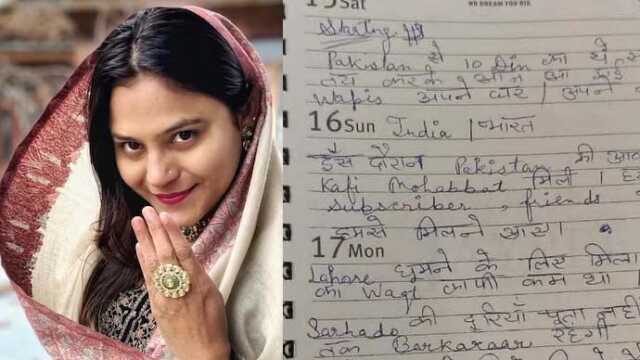 15 Sat
WE DREAM YOU RIS
Starting
Pakistan से 10 Din का ये
तय करके आज
Wapis अपने घर | अपने
16 Sun India | भारत
इस दौरान Pakistan की
Kafi Mohabbat मिली |
subscriber, friends
हमसे मिलने आए |
17 Mon
Lahore घुमने के लिए मिला
का Waqt काफी कम था
Sarhado की दूरियाँ पता नहीं
तक Barkaraar रहेंगी